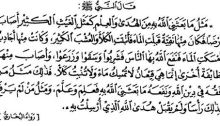 قَالَ النَّبِيُّ ﷺ:
مَثَلُ مَا بَعَثَنِي اللَّهُ بِهِ مِنَ الْهُدَى وَالْعِلْمِ كَمَثَلِ الْغَيْثِ الْكَثِيرِ أَصَابَ
فَكَانَ مِنْهَا نَقِيَّةٌ قَبِلَتِ الْمَاءَ فَأَنْبَتَتِ الْكَلَأَ وَالْعُشْبَ الْكَثِيرَ، وَكَانَتْ مِنْهَا أَجَادِبُ
اللَّهُ بِهَا النَّاسَ فَشَرِبُوا وَسَقَوْا وَزَرَعُوا، وَأَصَابَ مِنْهَا
أُخْرَى إِنَّمَا هِيَ قِيعَانٌ لَا تُمْسِكُ مَاءً وَلَا تُنْبِتُ كَلَأً، فَذَلِكَ مَثَلُ مَنْ
اللَّهِ وَنَفَعَهُ مَا بَعَثَنِي اللَّهُ بِهِ فَعَلِمَ وَعَلَّمَ، وَمَثَلُ مَنْ لَمْ يَرْفَعْ
بِذَلِكَ رَأْسًا وَلَمْ يَقْبَلْ هُدَى اللَّهِ الَّذِي أُرْسِلْتُ بِهِ.